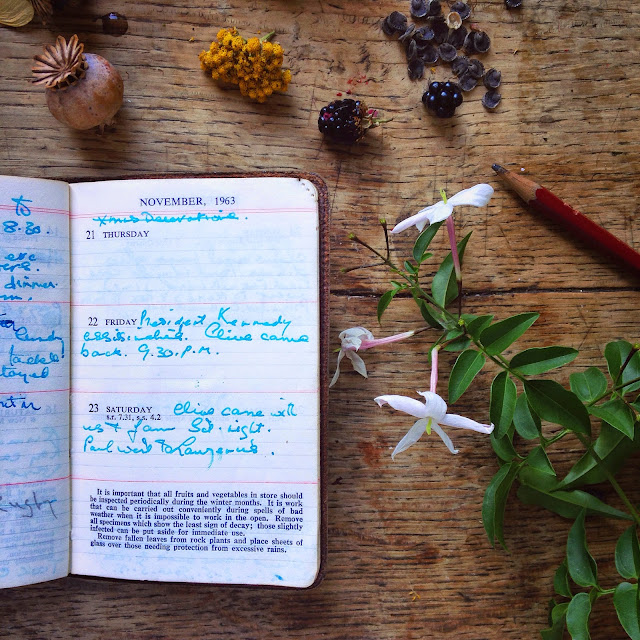 to
8.30.
dinner.
NOVEMBER, 1963
Xmas Decorations.
21 THURSDAY
22 FRIDAY President Kennedy
assassinated. Clive came
back. 9.30. P.M.
23 SATURDAY Clive came with
s.r. 7.31, s.s. 4.2
us &
Sat. night.
Paul went to
It is important that all fruits and vegetables in store should
be inspected periodically during the winter months. It is work
that can be carried out conveniently during spells of bad
weather when it is impossible to work in the open. Remove
all specimens which show the least sign of decay; those slightly
infected can be put aside for immediate use.
Remove fallen leaves from rock plants and place sheets of
glass over those needing protection from excessive rains.